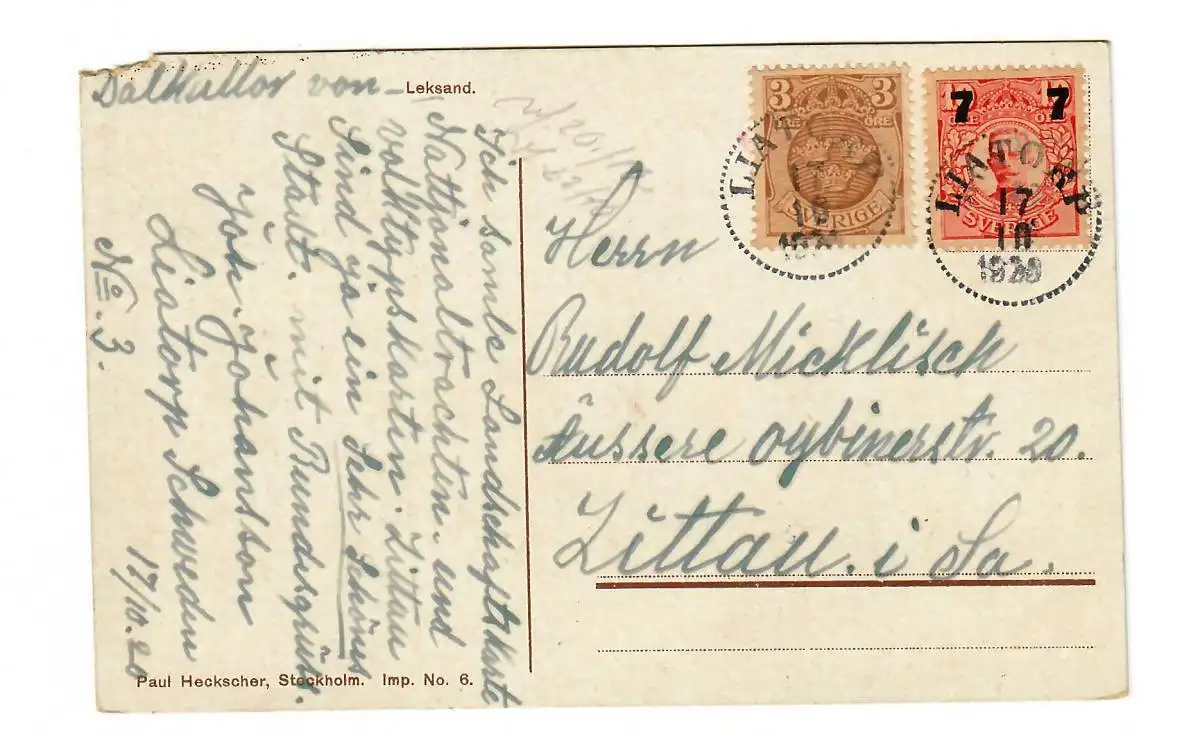 Dalkullor von Leksand.
Ich samle Landschaftskarte
Nattjonaltrachten und
volkstypskarten. Zittau
Sind ja ein Sehr Schönes
Staut. mit Bundisgrüss.
Joh. Johansson
Liatorp Schweden
No. 3.
17/10.20
Paul Heckscher, Stockholm. Imp. No. 6.
3 3
ÖRE ÖRE
SVERIGE
7 7
SVERIGE
LIATORP
17
10
LIATORP
17
10
1920
Herrn
Rudolf Micklisch
Äussere Oybinerstr. 20.
Zittau. i Sa.